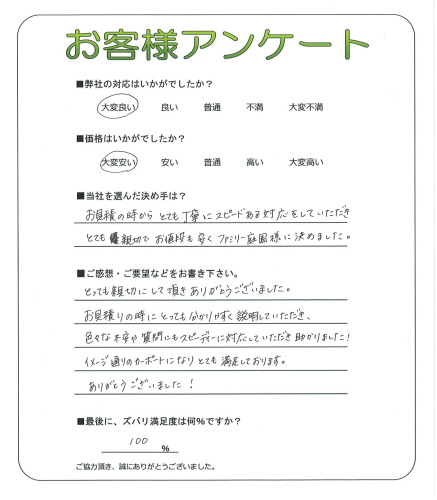 お客様アンケート
■弊社の対応はいかがでしたか？
大変良い 良い 普通 不満 大変不満
■価格はいかがでしたか？
大変安い 安い 普通 高い 大変高い
■当社を選んだ決め手は？
お見積の時から とても丁寧にスピードある対応をしていただき
とても 親切で お値段も安く ファミリー庭園様に決めました。
■ご感想・ご要望などをお書き下さい。
とっても親切にして頂きありがとうございました。
お見積りの時にとっても分かりやすく説明していただき、
色々な不安や質問にもスピーディーに対応していただき助かりました！
イメージ通りのカーポートになりとても満足しております。
ありがとうございました！
■最後に、ズバリ満足度は何%ですか？
100 %
ご協力頂き、誠にありがとうございました。